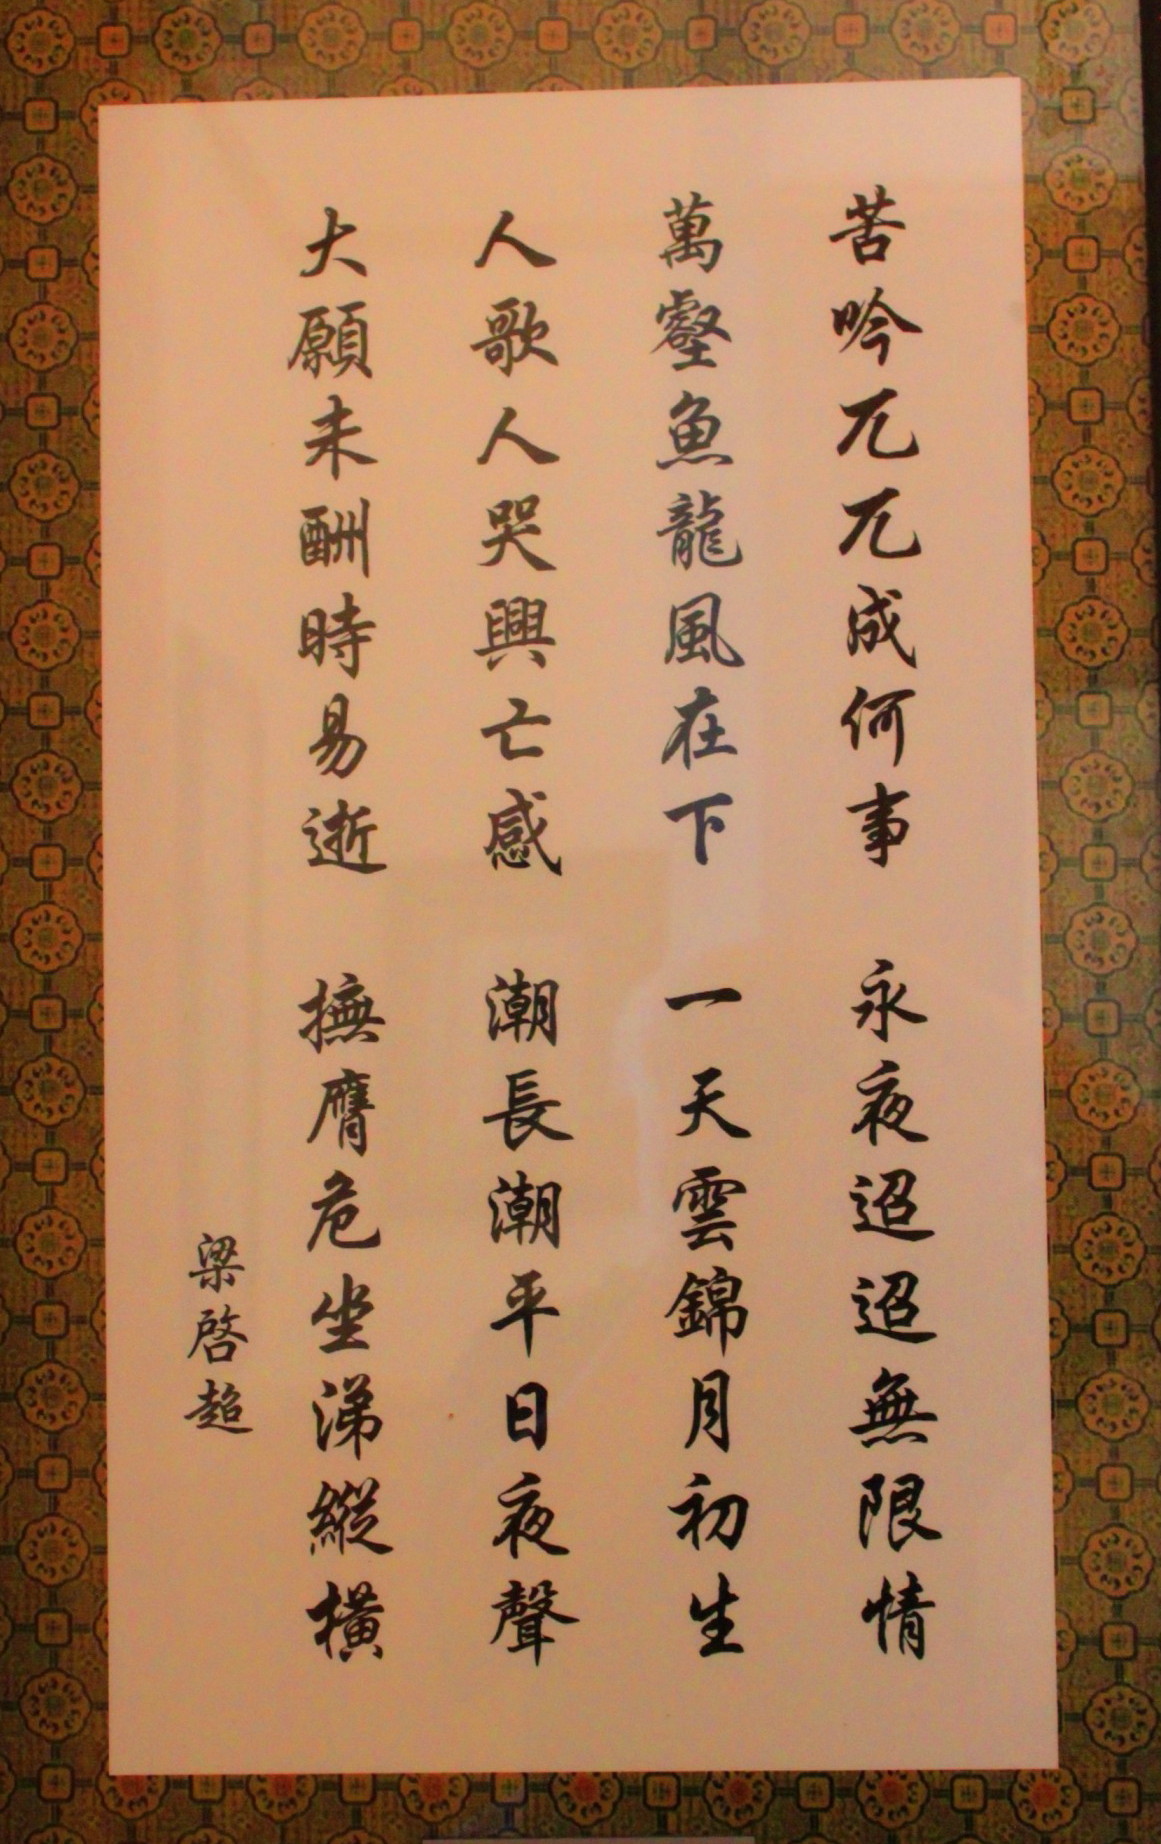 苦吟兀兀成何事 永夜迢迢無限情
萬壑魚龍風在下 一天雲錦月初生
人歌人哭興亡感 潮長潮平日夜聲
大願未酬時易逝 撫膺危坐涕縱橫
梁啓超